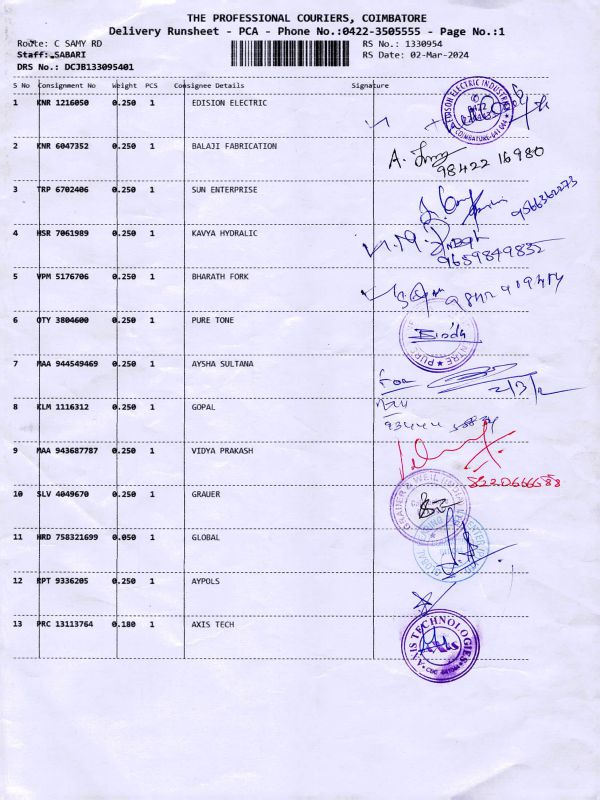 THE PROFESSIONAL COURIERS, COIMBATORE
Delivery Runsheet - PCA - Phone No.:0422-3505555 - Page No.:1
Route: C SAMY RD RS No.: 1330954
Staff: SABARI RS Date: 02-Mar-2024
DRS No.: DCJB133095401
S No Consignment No Weight PCS Consignee Details Signature
1 KNR 1216050 0.250 1 EDISION ELECTRIC
2 KNR 6047352 0.250 1 BALAJI FABRICATION
98422 16980
3 TRP 6702406 0.250 1 SUN ENTERPRISE
9566362273
4 HSR 7061989 0.250 1 KAVYA HYDRALIC
9659849832
5 VPM 5176706 0.250 1 BHARATH FORK
6 OTY 3804600 0.250 1 PURE TONE
7 MAA 944549469 0.250 1 AYSHA SULTANA
8 KLM 1116312 0.250 1 GOPAL
9 MAA 943687787 0.250 1 VIDYA PRAKASH
10 SLV 4049670 0.250 1 GRAUER
11 HRD 758321699 0.050 1 GLOBAL
12 RPT 9336205 0.250 1 AYPOLS
13 PRC 13113764 0.180 1 AXIS TECH
AXIS TECHNOLOGIES